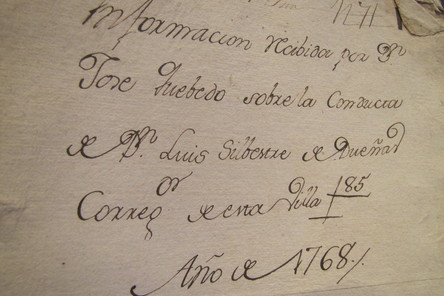 N.11
Informacion recibida por Dn
Jose Quebedo sobre la Conducta
de Dn. Luis Silbestre de Dueñas
Correg.or de esta Villa 85
Año de 1768